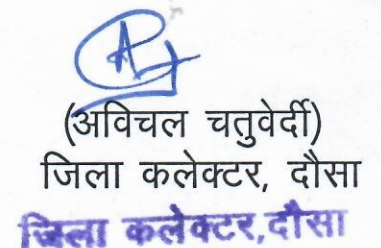 (अविचल चतुर्वेदी)
जिला कलेक्टर, दौसा
जिला कलेक्टर,दौसा